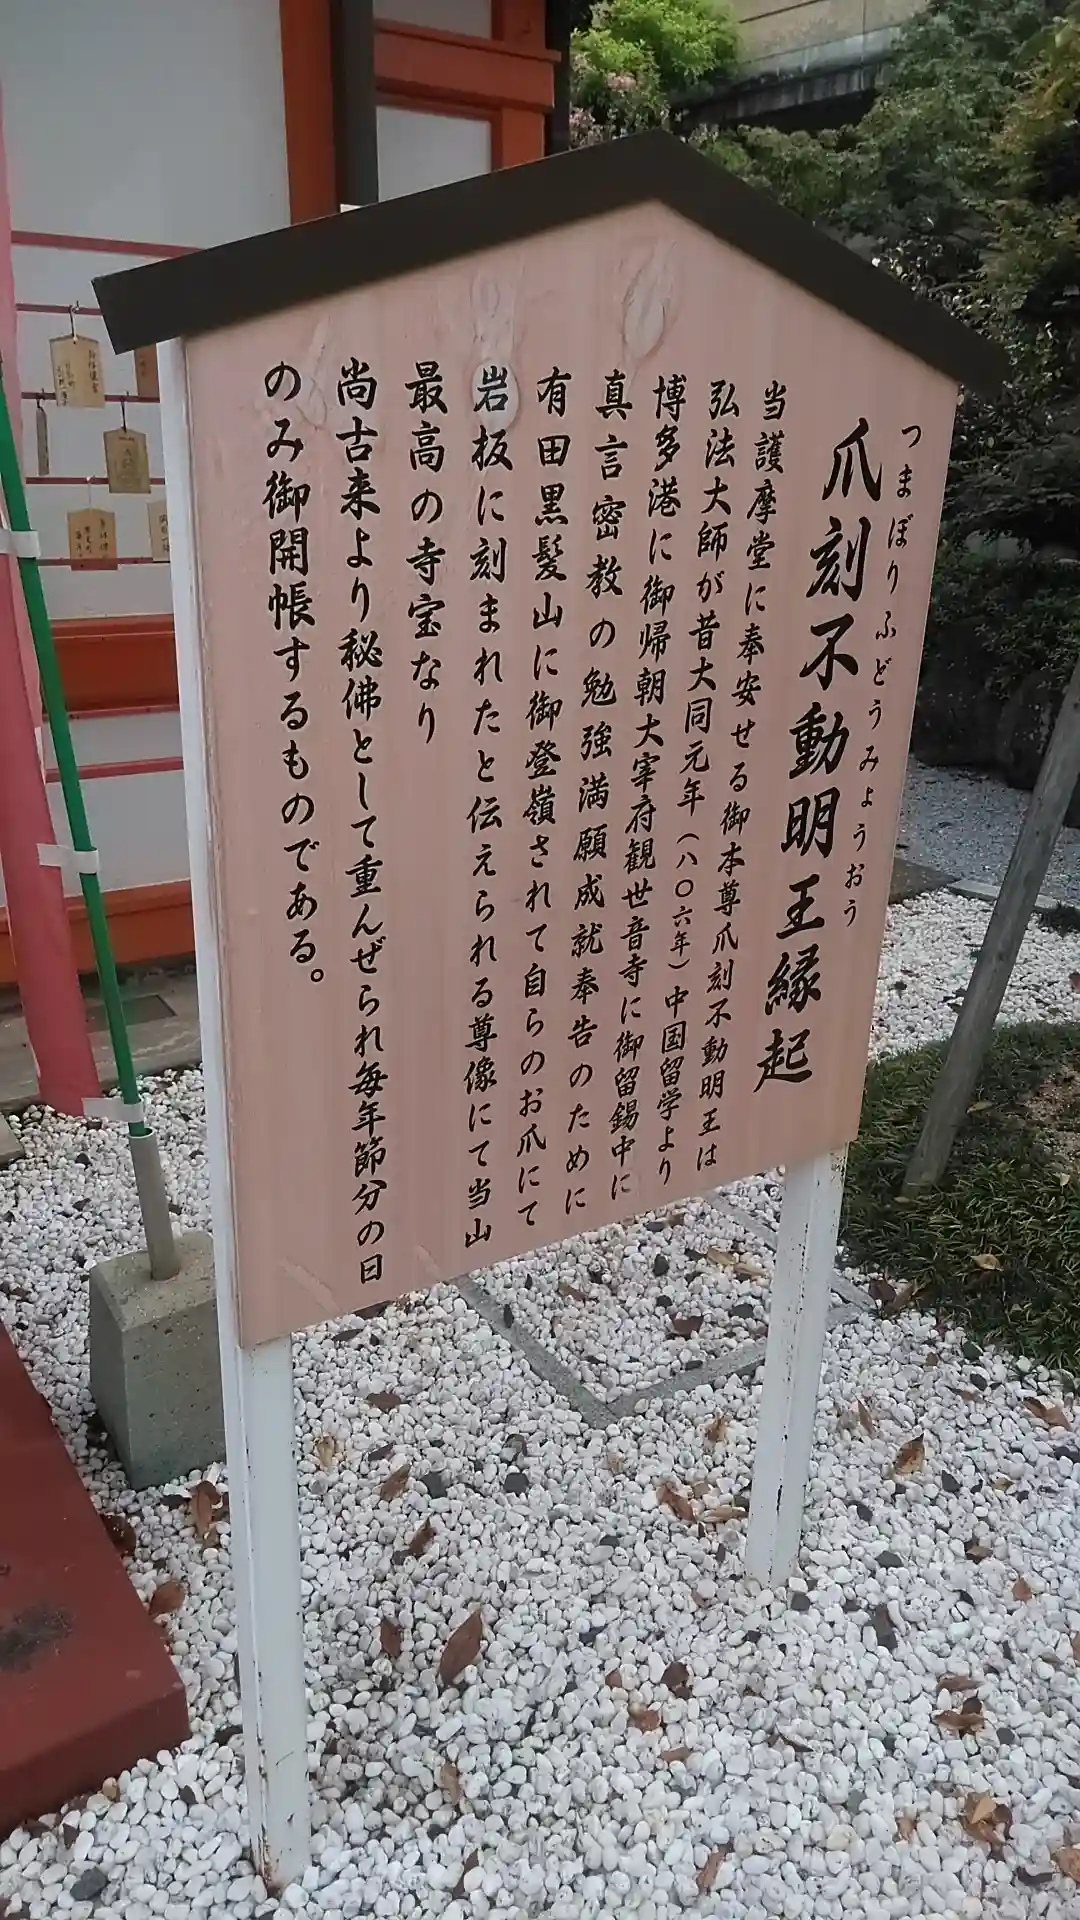 つまぼりふどうみょうおう
爪刻不動明王縁起
当護摩堂に奉安せる御本尊爪刻不動明王は
弘法大師が昔大同元年（八〇六年）中国留学より
博多港に御帰朝大宰府観世音寺に御留錫中に
真言密教の勉強満願成就奉告のために
有田黒髪山に御登嶺されて自らのお爪にて
岩板に刻まれたと伝えられる尊像にて当山
最高の寺宝なり
尚古来より秘佛として重んぜられ毎年節分の日
のみ御開帳するものである。